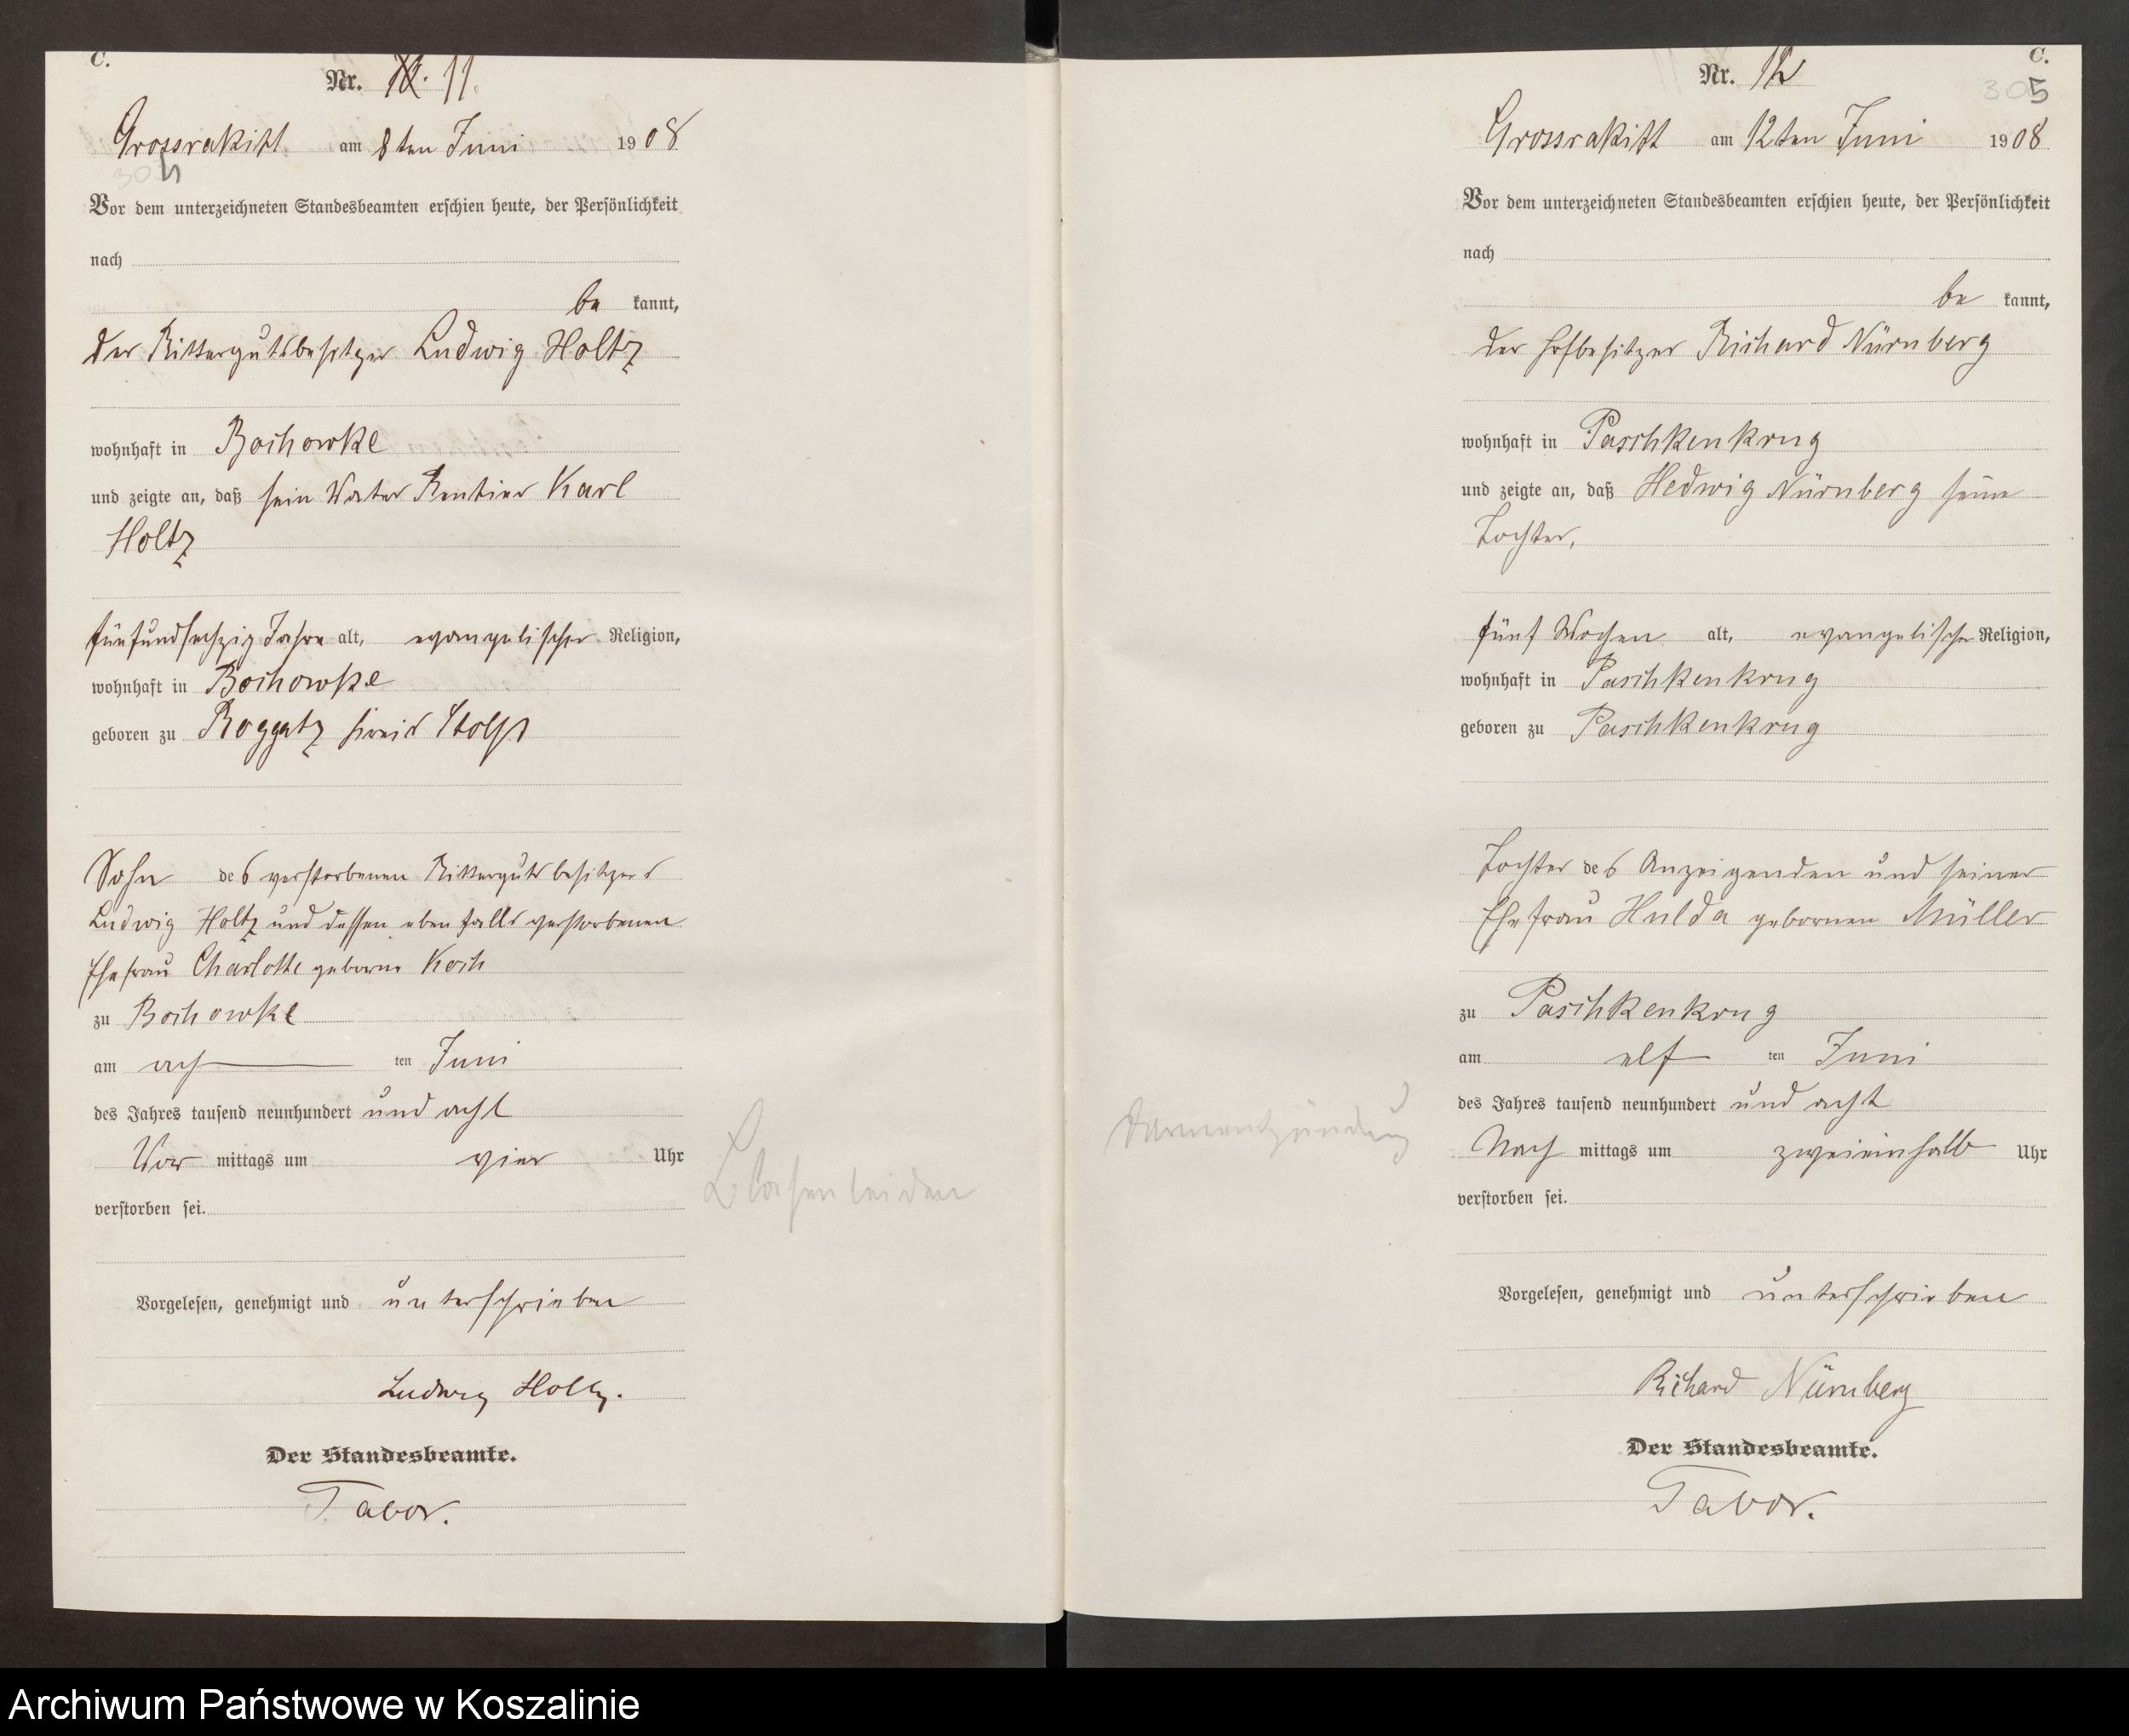 C.
Nr. 11.
Grossrakitt am 8ten Juni 1908
304
Vor dem unterzeichneten Standesbeamten erschien heute, der Persönlichkeit
nach
be kannt,
der Rittergutsbesitzer Ludwig Holtz
wohnhaft in Bochowke
und zeigte an, daß sein Vater Rentier Karl
Holtz
fünfundsechzig Jahre alt, evangelischer Religion,
wohnhaft in Bochowke
geboren zu Roggatz Kreis Stolp
Sohn des verstorbenen Rittergutsbesitzers
Ludwig Holtz und dessen ebenfalls verstorbenen
Ehefrau Charlotte geborne Koch
zu Bochowke
am ach ten Juni
des Jahres tausend neunhundert und acht
Vor mittags um vier Uhr
verstorben sei.
Blasenleiden
Vorgelesen, genehmigt und unterschrieben
Ludwig Holtz.
Der Standesbeamte.
Tabor.
C.
Nr. 12
305
Grossrakitt am 12ten Juni 1908
Vor dem unterzeichneten Standesbeamten erschien heute, der Persönlichkeit
nach
be kannt,
der Hofbesitzer Richard Nürnberg
wohnhaft in Paschkenkrug
und zeigte an, daß Hedwig Nürnberg seine
Tochter,
fünf Wochen alt, evangelischer Religion,
wohnhaft in Paschkenkrug
geboren zu Paschkenkrug
Tochter des Anzeigenden und seiner
Ehefrau Hulda gebornen Müller
zu Paschkenkrug
am elf ten Juni
des Jahres tausend neunhundert und acht
Nach mittags um zweieinhalb Uhr
verstorben sei.
Darmentzündung
Vorgelesen, genehmigt und unterschrieben
Richard Nürnberg
Der Standesbeamte.
Tabor.
Archiwum Państwowe w Koszalinie